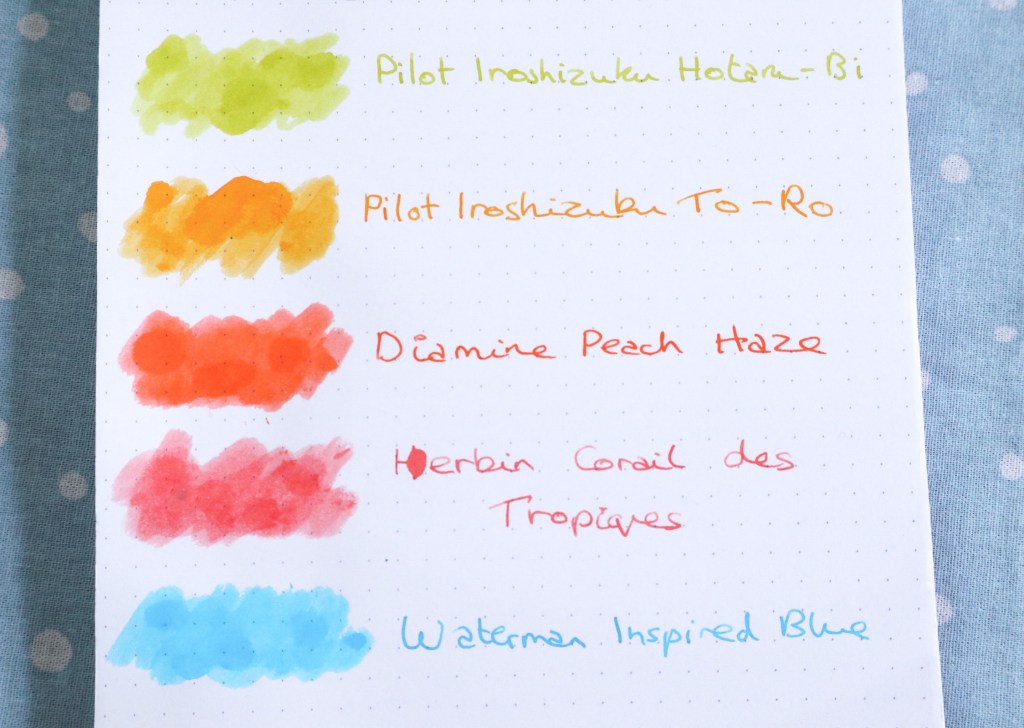 Pilot Iroshizuku Hotaru-Bi
Pilot Iroshizuku To-Ro
Diamine Peach Haze
Herbin Corail des
Tropiques
Waterman Inspired Blue